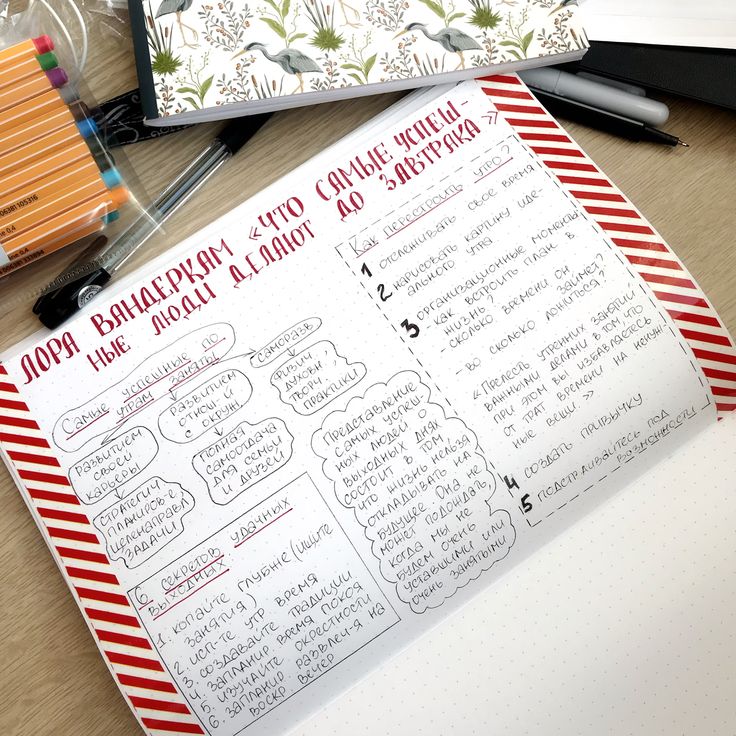 ЛОРА ВАНДЕРКАМ «ЧТО САМЫЕ УСПЕШ-
НЫЕ ЛЮДИ ДЕЛАЮТ ДО ЗАВТРАКА»
Самые успешные по
утрам заняты
развитием
своей
карьеры
стратегии
планиров-е
целенаправл
задачи
развитием
отнош-й
с окруж.
полная
самоотдача
для семьи
и друзей
саморазв
физич,
духовн,
творч
практики
6 секретов удачных
выходных
1. копайте глубже (ищите
занятия)
2. исп-те утр время
3. создавайте традиции
4. запланир. время покоя
5. изучайте окрестности
6. запланир развлеч-я на
воскр вечер
Представление
самых успеш
ных людей о
выходных днях
состоит в том
что жизнь нельзя
откладывать на
будущее она не
может подождать
когда мы не
будем очень
уставшими или
очень занятыми
Как перестроить утро?
1 отслеживать свое время
2 нарисовать картину иде-
ального утра
3 организационные моменты
- как встроить план в
жизнь?
- сколько времени он
займет?
- во сколько ложиться?
«Прелесть утренних занятий
важными делами в том что
при этом вы избавляетесь
от трат времени на ненуж-
ные вещи.»
4 создать привычку
5 подстраивайтесь под
возможности
06381 105316
0.4
ne 0,4